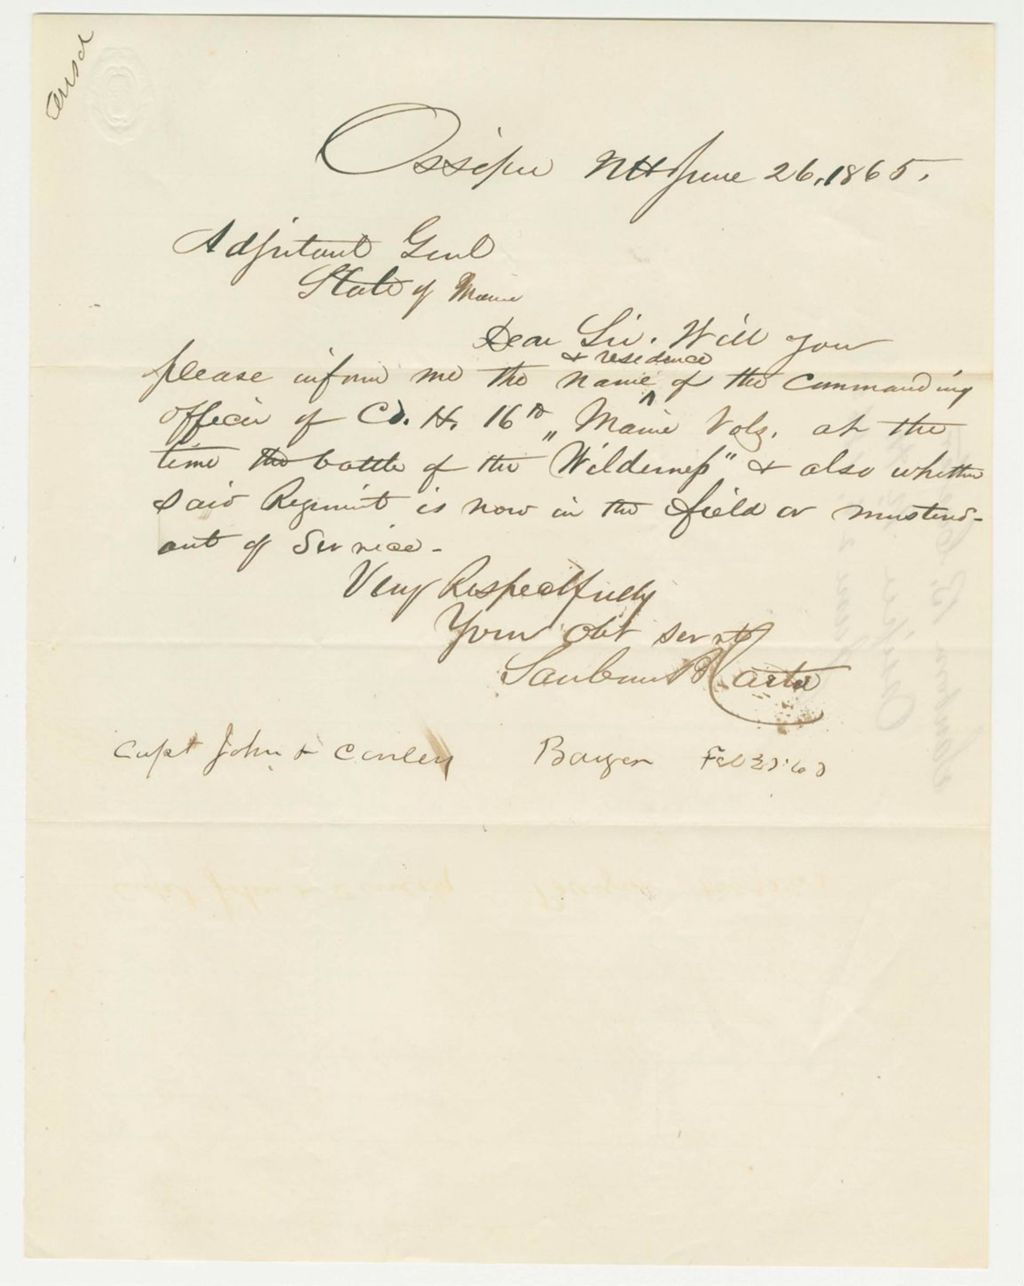 ansd
Ossipee NH June 26, 1865.
Adjutant Genl
State of Maine
Dear Sir. Will you
please inform me the name & residence of the Commanding
officer of Co. H. 16th Maine Vols. at the
time the battle of the "Wilderness" & also whether
said Regiment is now in the field or mustered
out of Service.
Very Respectfully
Your Obt servt
Sanborn B Carter
Capt John Conley Bangor Feb